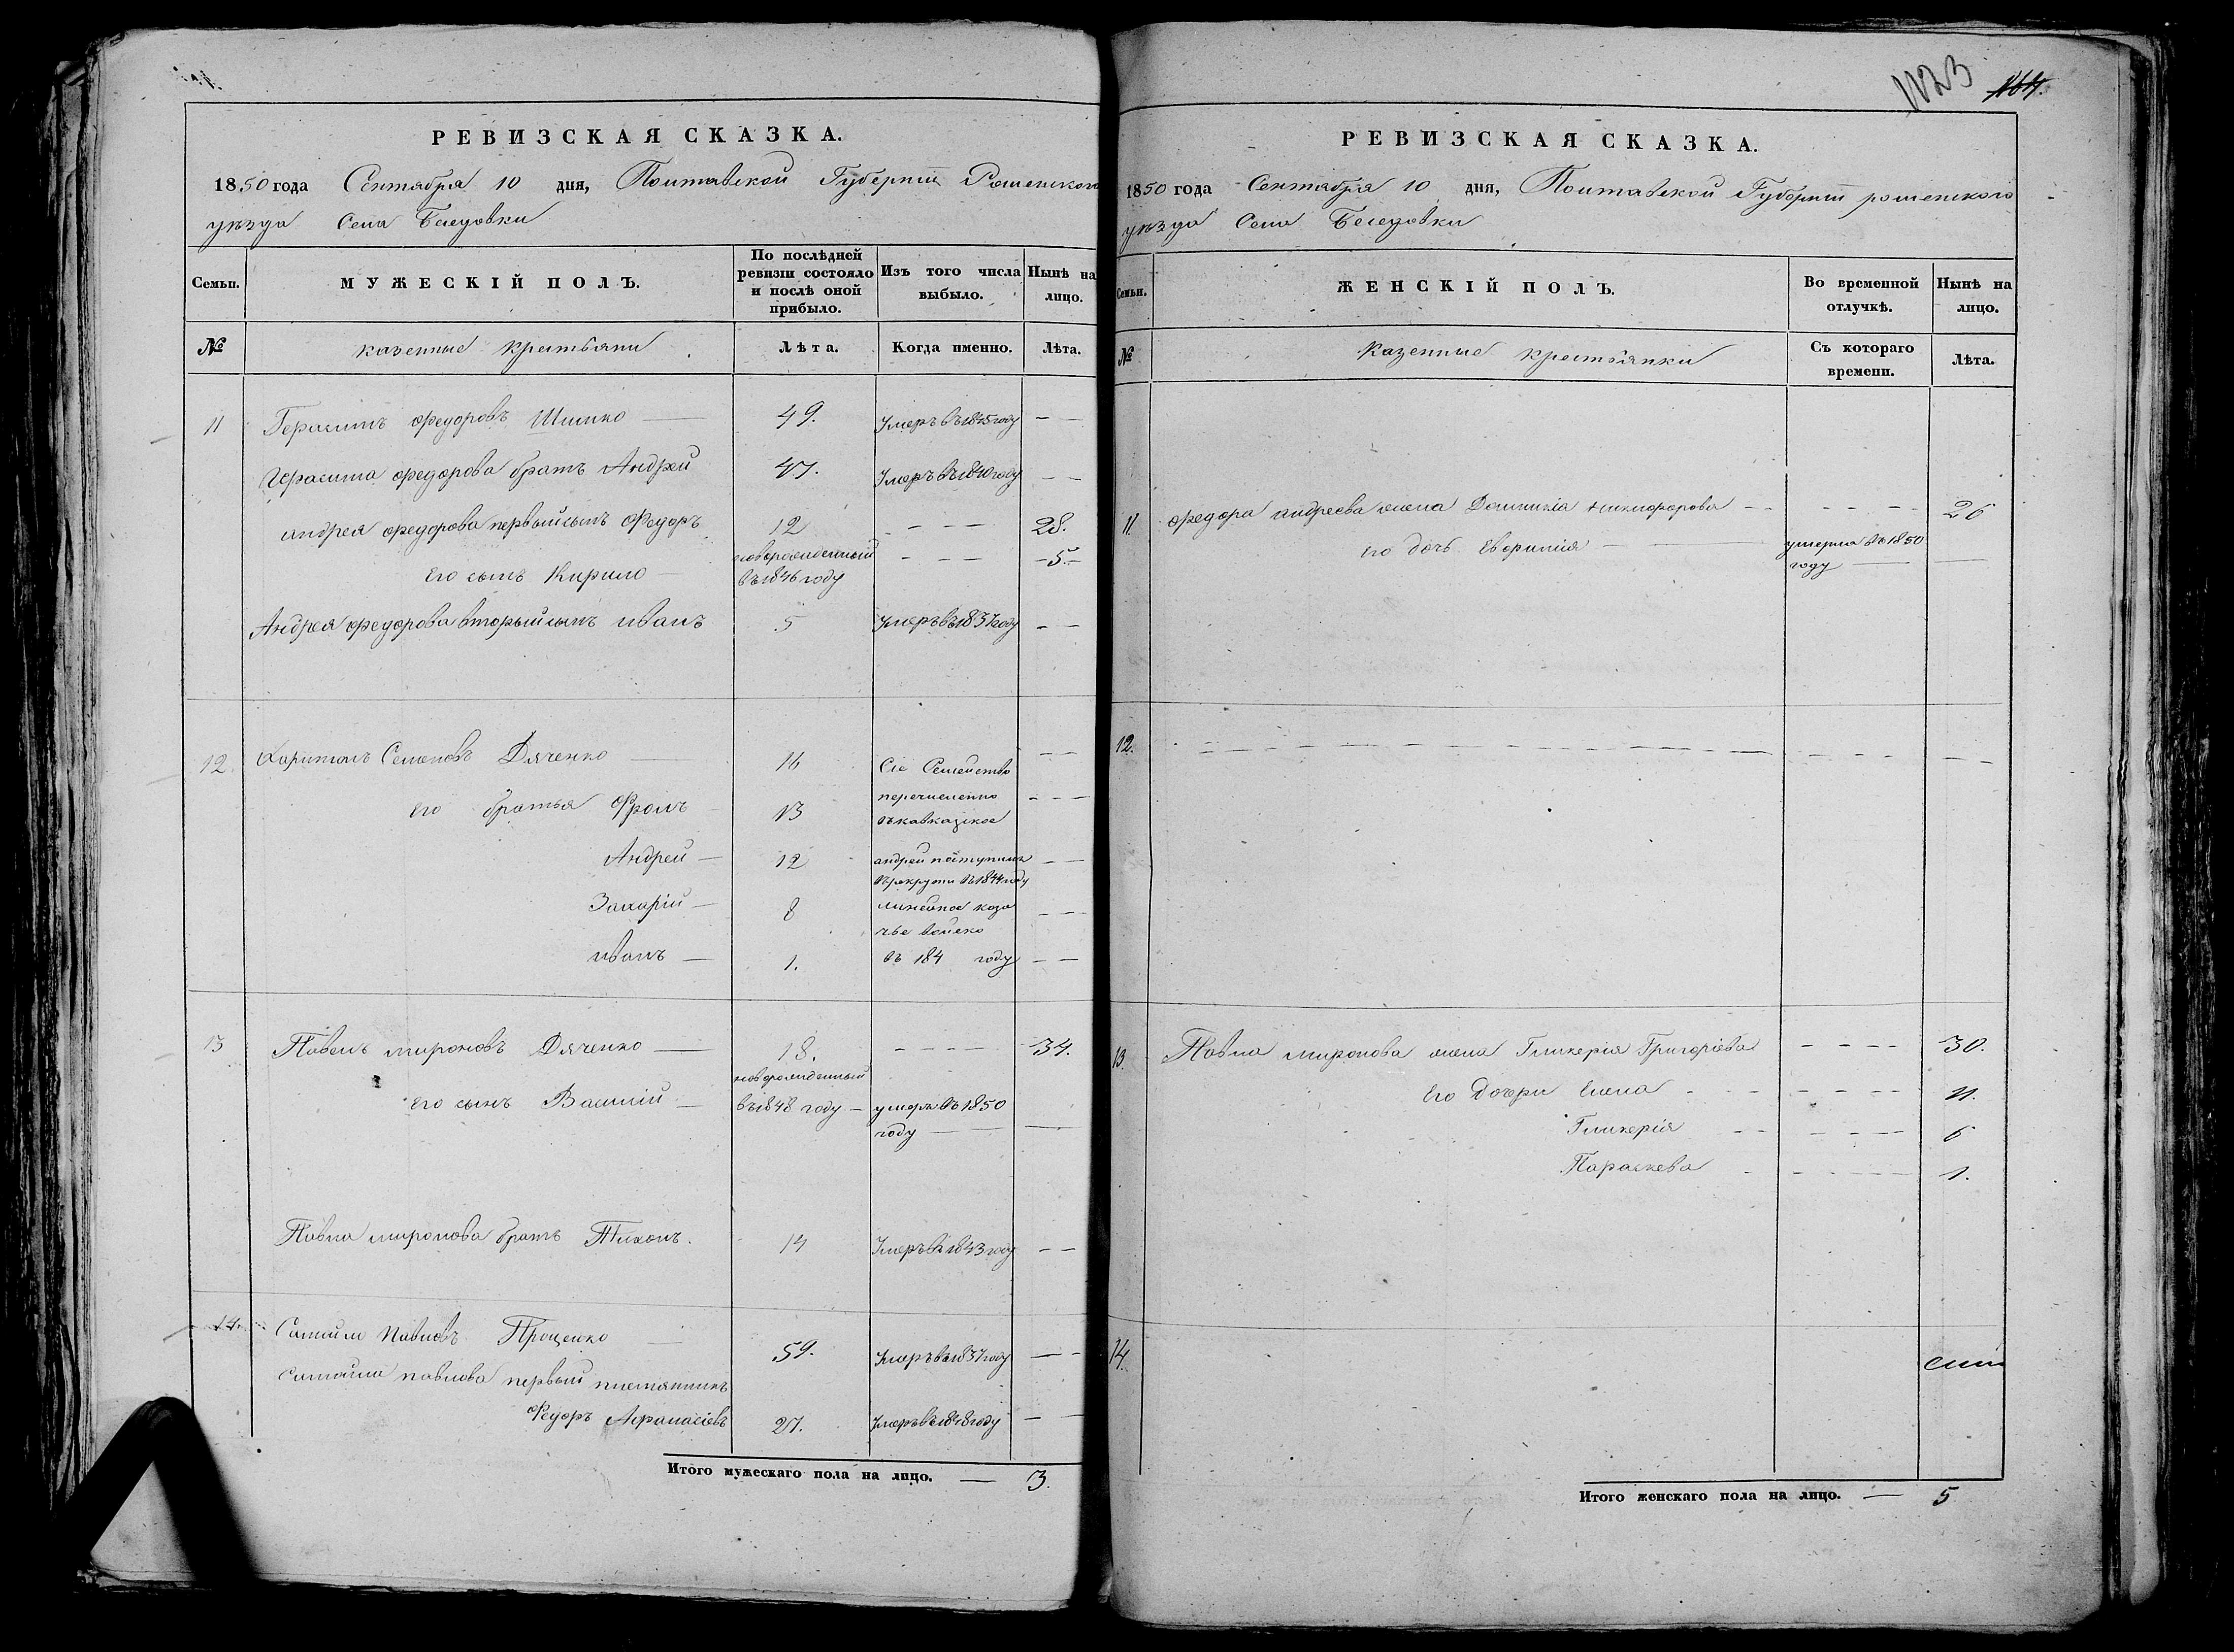 РЕВИЗСКАЯ СКАЗКА.
1850 года Сентября 10 дня, Полтавской Губерніи Роменского
уѣзда Села Беседовки
Семьи.
МУЖЕСКІЙ ПОЛЪ.
По послѣдней
ревизіи состояло
и послѣ оной
прибыло.
Изъ того числа
выбыло.
Нынѣ на
лицо.
№
казенные крестьяни
Лѣта.
Когда именно.
Лѣта.
11 Герасимъ федоровъ Шимко — 49. Умеръ въ 1845 году — —
Герасима федорова братъ Андрей 47. Умеръ въ 1840 году — —
андрея федорова первый сынъ Федоръ 12 — — — 28.
Его сынъ Кирило — новорожденный
въ 1846 году — — — -5.-
Андрея федорова вторый сынъ иванъ 5 Умеръ въ 1837 году — —
12. Харитонъ Семеновъ Дяченко — 16 Сіе Семейство — —
перечисленно
Его братья Фролъ 13 — — —
въ кавказкое
Андрей — 12 андрей поступилъ — —
въ рекруты въ 1844 году
Захарій — 8 линейное коза — —
чье войско
иванъ — 1. въ 184 году — —
13 Павелъ мироновъ Дяченко — 18. — — — 34.
новорожденный
Его сынъ Василій — въ 1848 году — умеръ въ 1850
году — —
Павла миронова братъ Тихонъ. 14 Умеръ въ 1843 году — —
14. Самойло Павловъ Проценко — 59. Умеръ въ 1837 году — —
самойла павлова первый племянникъ
Федоръ Афанасіевъ 27. Умеръ въ 1848 году — —
Итого мужескаго пола на лицо. — 3.
1123 164.
РЕВИЗСКАЯ СКАЗКА.
1850 года Сентября 10 дня, Полтавской Губерніи роменского
уѣзда Села Беседовки
Семьи.
ЖЕНСКІЙ ПОЛЪ.
Во временной
отлучкѣ.
Нынѣ на
лицо.
№
Казенные крестьянки
Съ котораго
времени.
Лѣта.
11. федора андреева жена Домникія никифорова — — — — — — 26
Его дочь Евфимія — умерла въ 1850
году — —
12. — — — — — —
13. Павла миронова жена Гликерія Григоріева — — — — 30.
Его Дочери Елена — — — 11.
Гликерія — — — 6
Параскева — — — 1.
14.
Итого женскаго пола на лицо. — 5